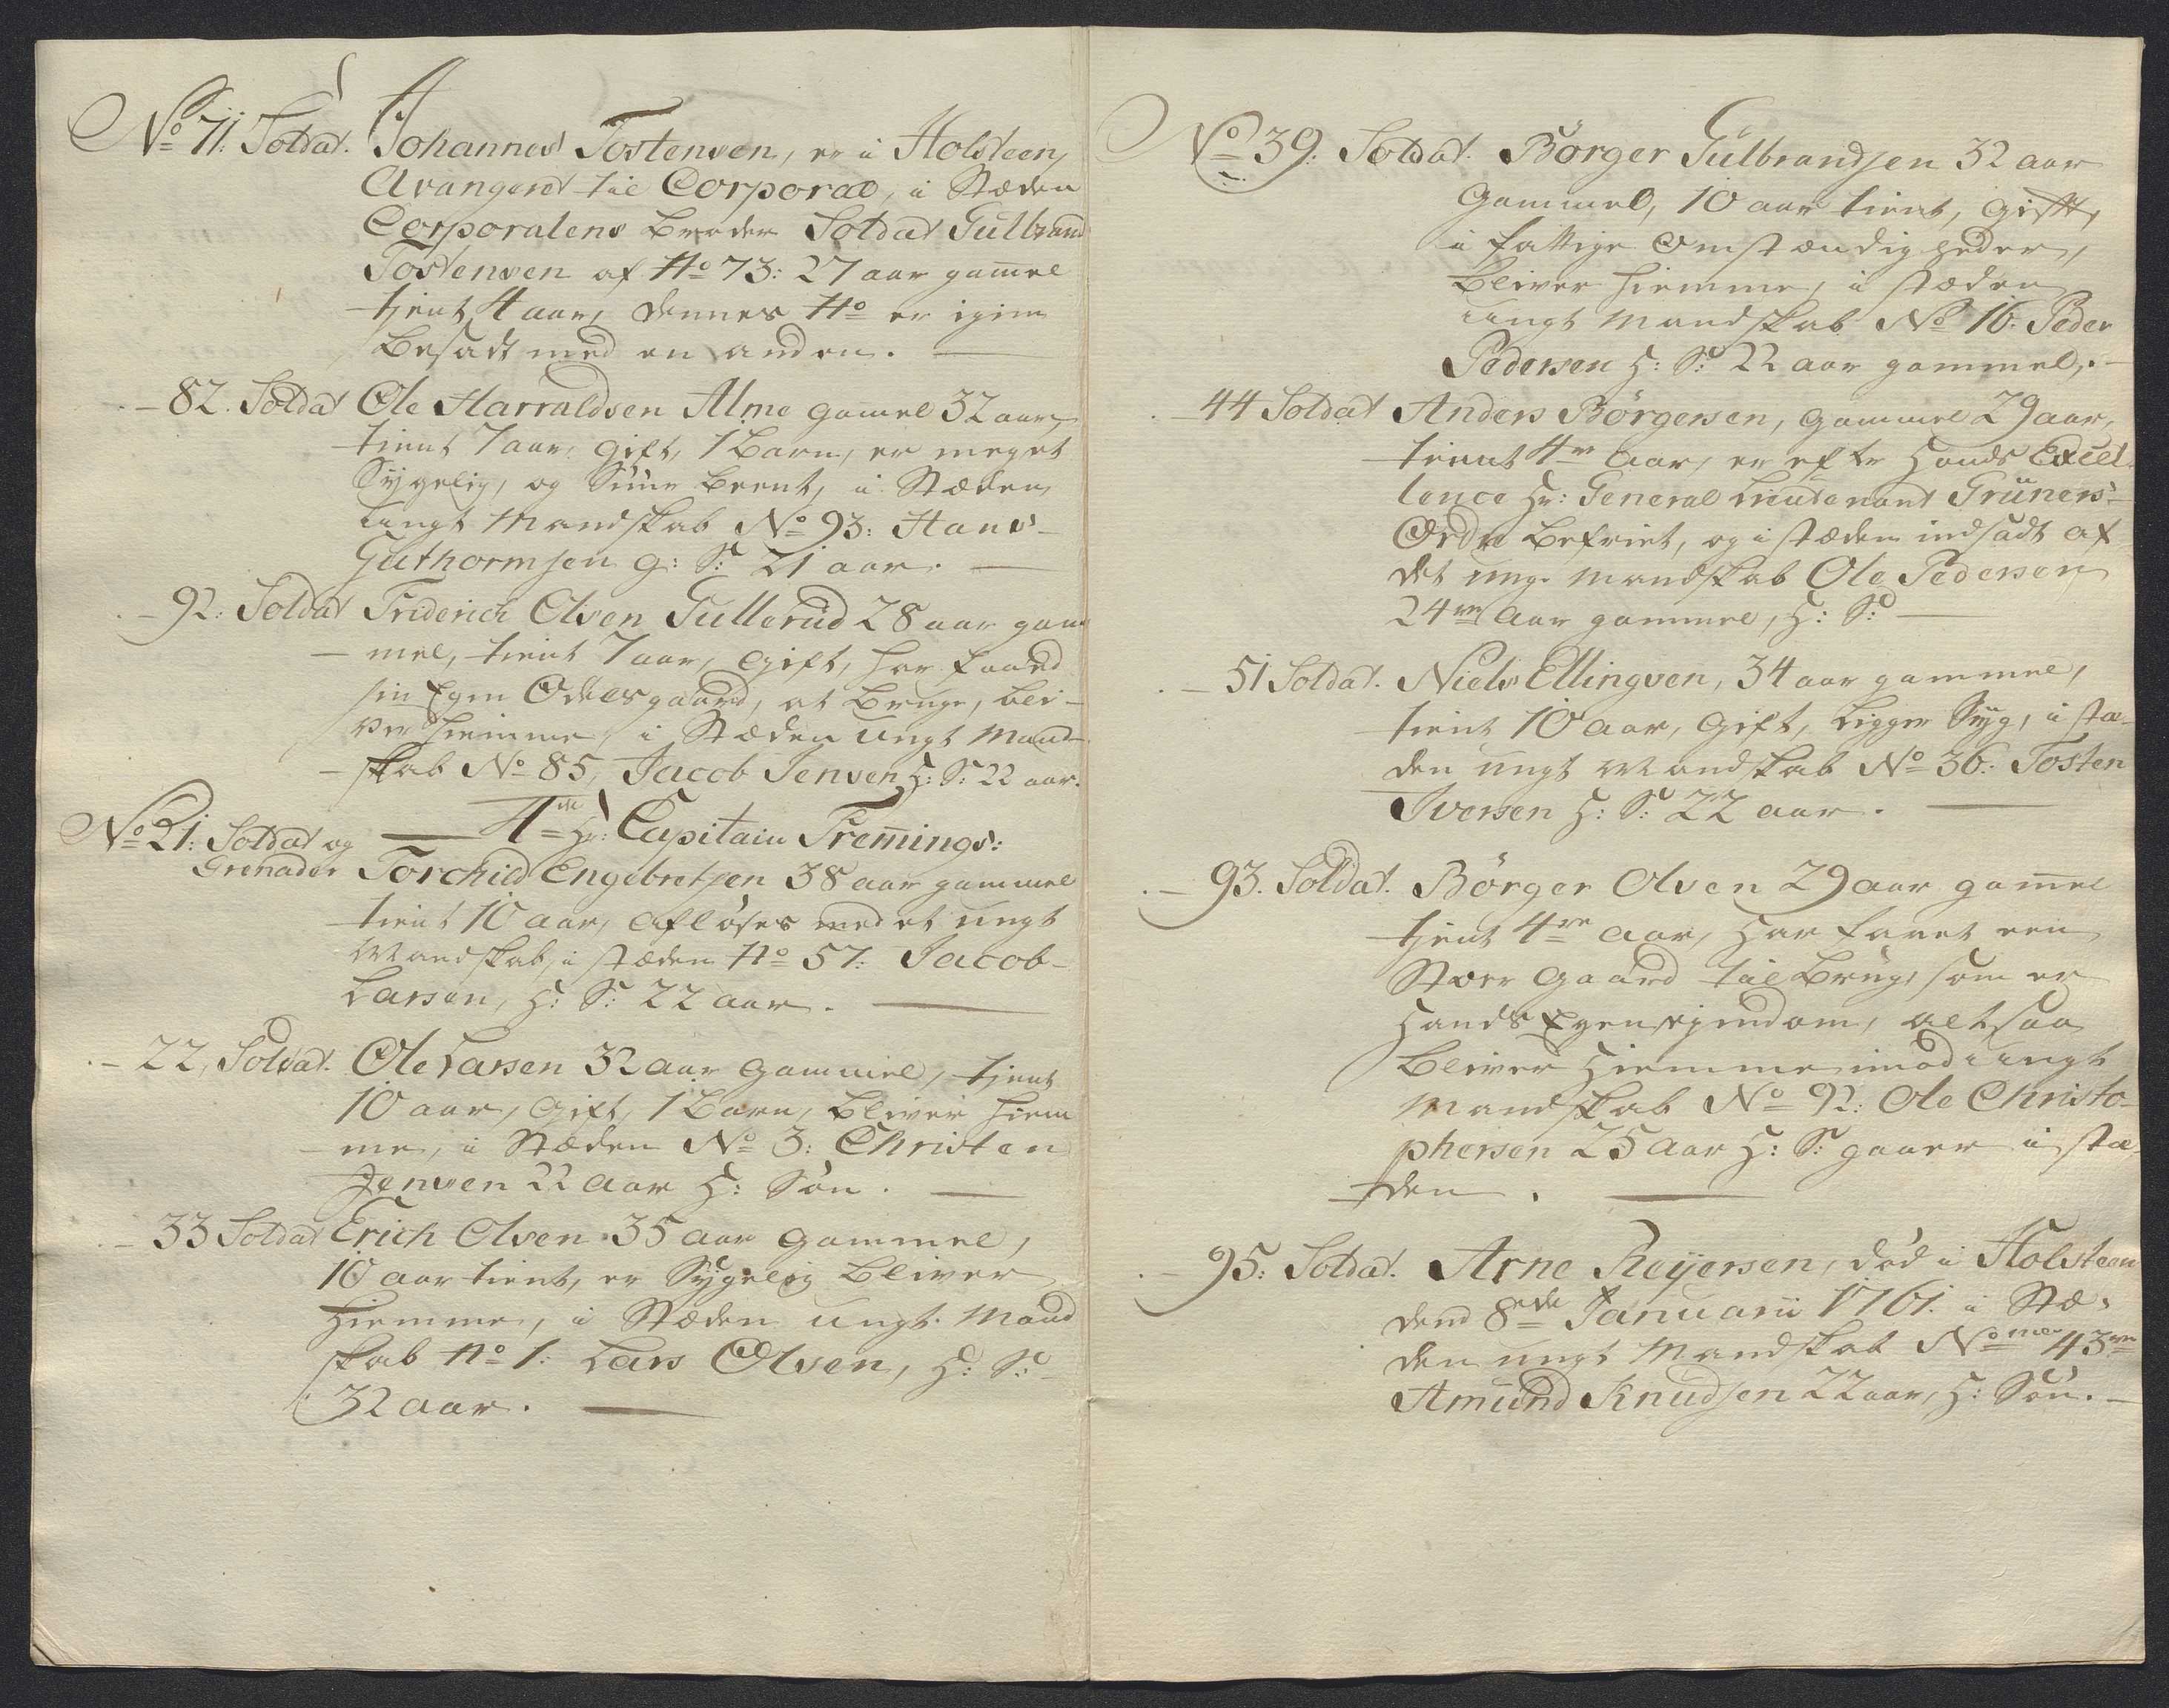 No 71. Soldat. Johannes Tostensen, er i Holsteen,
Avangeret til Corporal, i Stæden
Corporalens broder Soldat Gulbrand
Tostensen af No 73: 27 aar gam̅el
tjent 4 aar, dennes No er igien
besadt med en anden.
- 82. Soldat Ole Harraldsen Alme gam̅el 32 aar,
tient 7 aar, gift, 1 Barn, er meget
Sygelig, og Siine beent, i Stæden
ungt Mandskab No 93: Hans
Guthormsen g: S: 21 aar.
- 92: Soldat Friderich Olsen Gullerud 28 aar gam
mel, tient 7 aar, gift, har faaed
sin Egen Odelsgaard, at bruge, bli-
ver hiemme, i Stæden ungt Mand-
skab No 85, Jacob Jensen H: S: 22 aar.
4de Hr: Capitain Frem̅ings:
No 21: Soldat og
Grenader Torchild Engebretsen 38 aar gammel
tient 10 aar, afløses med et ungt
Mandskab, i stæden No 57: Jacob
Larsen, H: S: 22 aar.
- 22, Soldat. Ole Larsen 32 aar gammel, tjent
10 aar, gift, 1 Barn, bliver hiem
me, i Stæden No 3: Christen
Jensen 22 aar H: Søn.
- 33 Soldat Erich Olsen 35 aar gammel,
10 aar tient, er Sygelig bliver
hiemme, i Stæden ungt Mand
skab No 1: Lars Olsen, H: S:
32 aar.
No 39: Soldat. Børger Gulbrandsen 32 aar
gammel, 10 aar tient, gift,
i fattige Omstændigheder,
bliver hiemme, i stæden
ungt Mandskab No 16: Peder
Pedersen H: S: 22 aar gammel.
- 44 Soldat Anders Børgersen, gammel 29 aar,
tient 4re aar, er efter Hands Excel
lence Hr: General Lieutenant Grüners
Ordre befriet, og i stæden indsadt af
det unge Mandskab Ole Pedersen
24re aar gammel, H: S:
- 51 Soldat. Niels Ellingsen, 34 aar gammel,
tient 10 aar, gift, ligger Syg, i stæ-
den ungt Mandskab No 36: Tosten
Iversen H: S: 22 aar.
- 93. Soldat. Børger Olsen 29 aar gam̅el
tjent 4re aar, har faaet een
Stoer gaard til brug, som er
Hands Egen ejendom, altsaa
bliver hiemme imod ungt
Mandskab No 92: Ole Christo-
phersen 25 aar H: S: gaaer i stæ-
den.
- 95: Soldat. Arne Reyersen, død i Holsteen
dend 8de Januarii 1761. i Stæ-
den ungt Mandskab Nomer 43re
Amund Knudsen 22 aar, H: Søn.